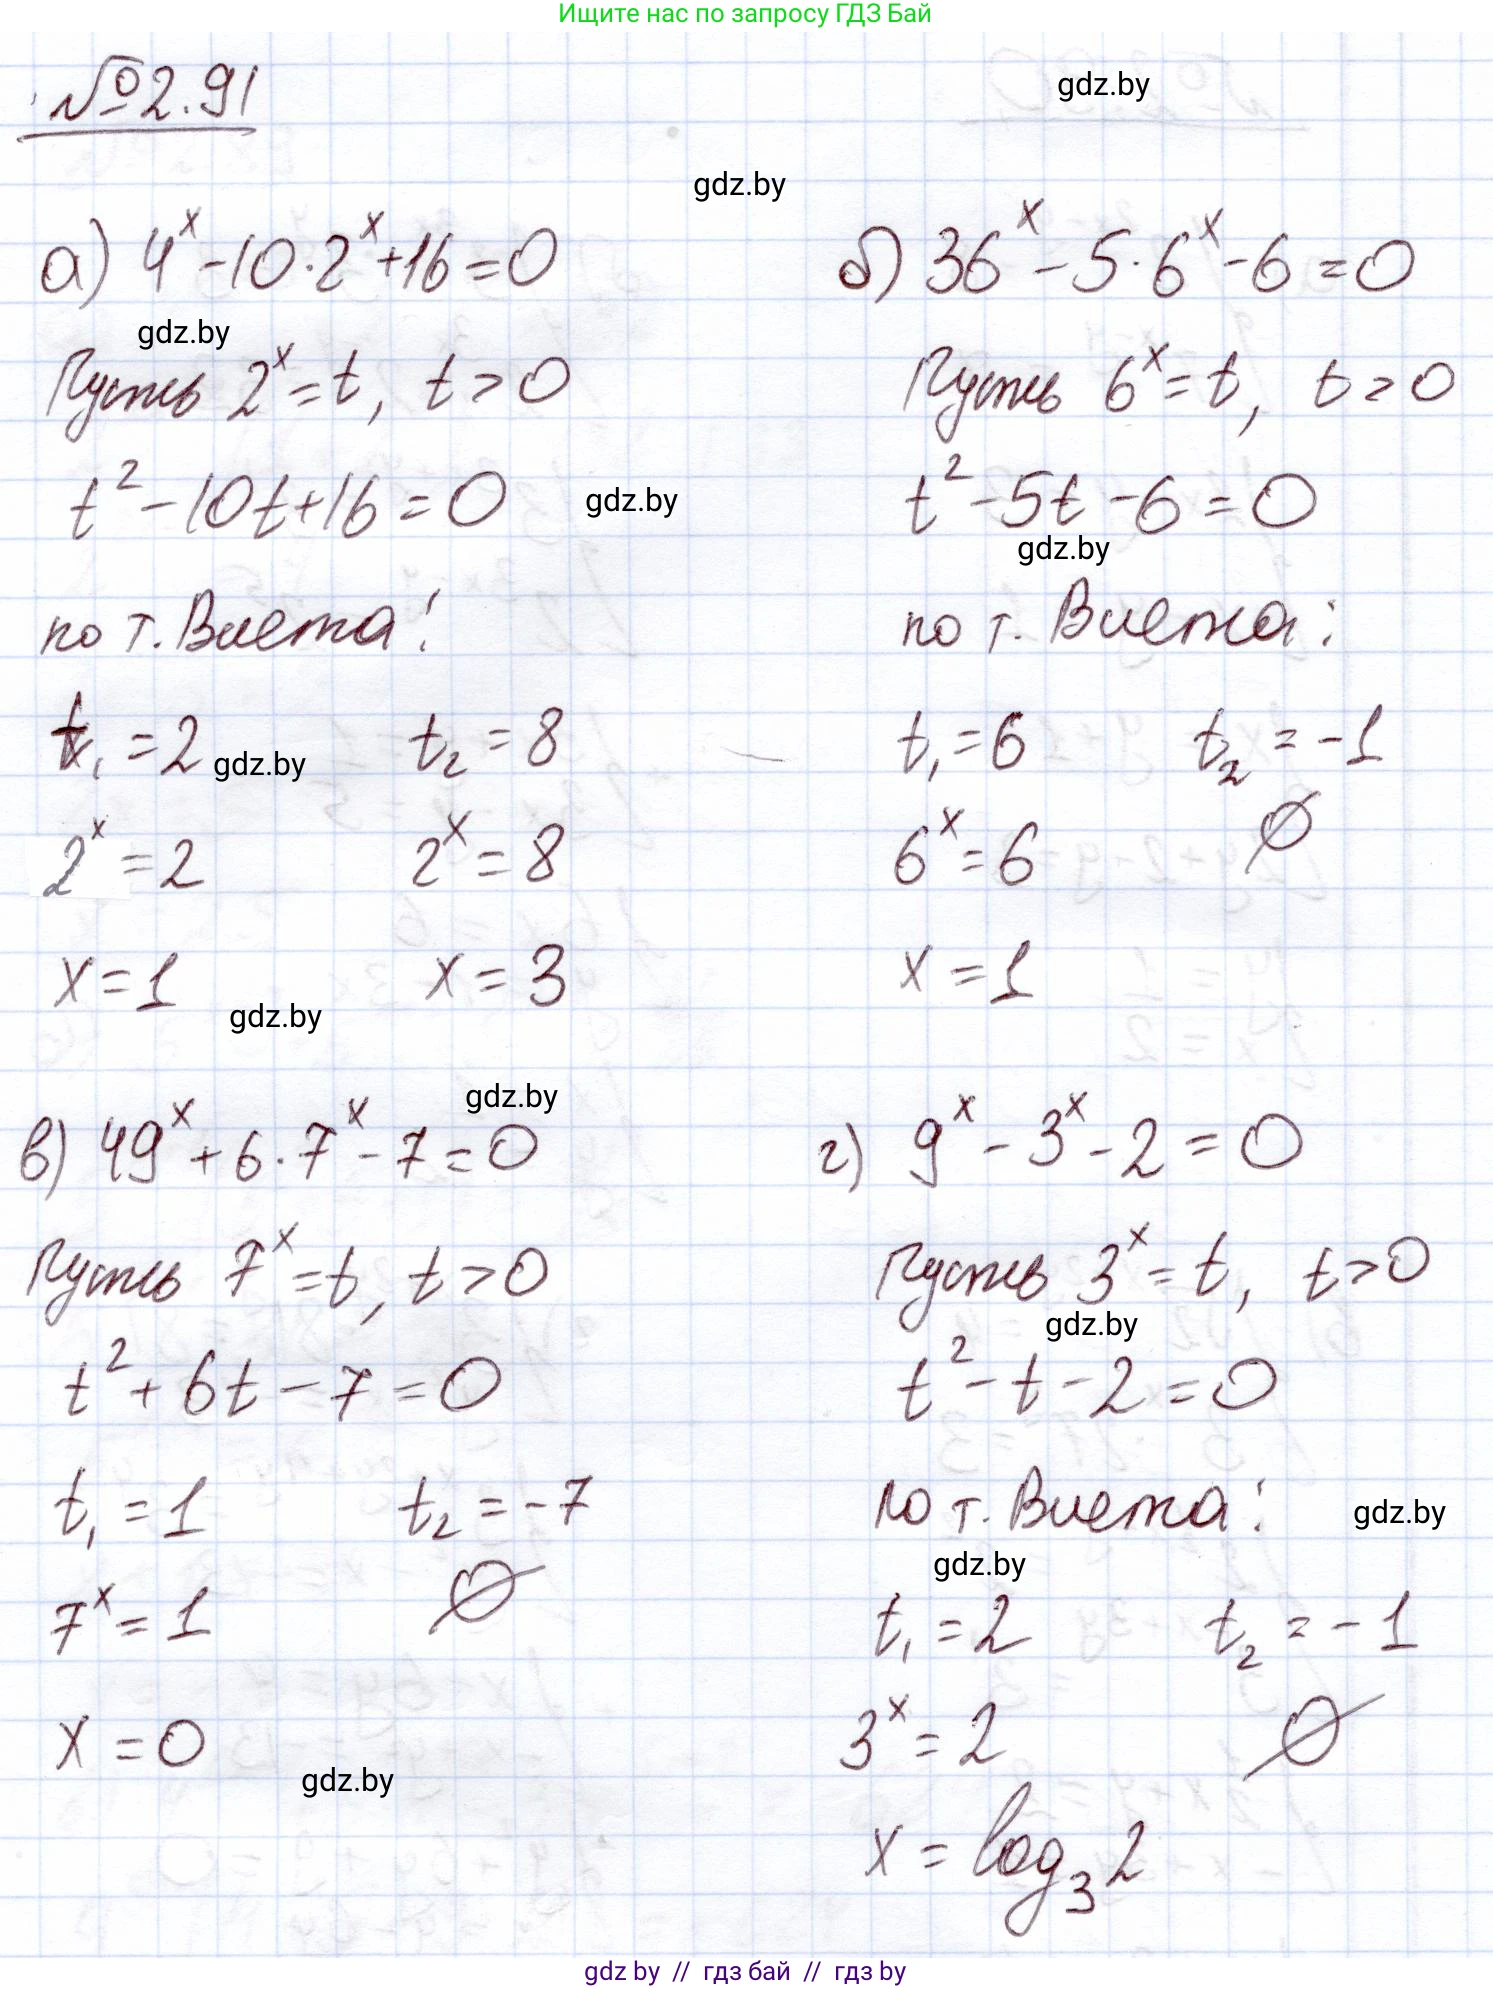 Ищите нас по запросу ГДЗ Бай
№2.91
gdz.by
gdz.by
а) 4^x - 10 · 2^x + 16 = 0
gdz.by
Пусть 2^x = t, t > 0
t^2 - 10t + 16 = 0
gdz.by
по т. Виета:
t_1 = 2 t_2 = 8
gdz.by
2^x = 2 2^x = 8
x = 1 x = 3
gdz.by
б) 36^x - 5 · 6^x - 6 = 0
Пусть 6^x = t, t > 0
t^2 - 5t - 6 = 0
gdz.by
по т. Виета:
t_1 = 6 t_2 = -1
6^x = 6 ∅
x = 1
gdz.by
в) 49^x + 6 · 7^x - 7 = 0
Пусть 7^x = t, t > 0
t^2 + 6t - 7 = 0
t_1 = 1 t_2 = -7
7^x = 1 ∅
x = 0
gdz.by
г) 9^x - 3^x - 2 = 0
Пусть 3^x = t, t > 0
gdz.by
t^2 - t - 2 = 0
по т. Виета:
gdz.by
gdz.by
t_1 = 2 t_2 = -1
3^x = 2 ∅
x = log_3 2
gdz by // гдз бай // гдз by